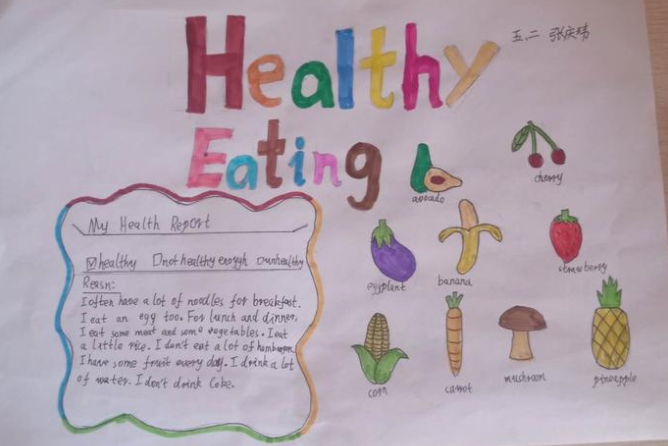 Healthy
五.二 张庆玮
Eating
avocado
cherry
My Health Report
☑healthy □not healthy enough □unhealthy
Reasn:
I often have a lot of noodles for breakfast.
I eat an egg too. For lunch and dinner,
I eat some meat and some vegetables. I eat
a little rice. I don't eat a lot of hamburgers.
I have some fruit every day. I drink a lot
of water. I don't drink Coke.
eggplant
banana
strawberry
corn
carrot
mushroom
pineapple